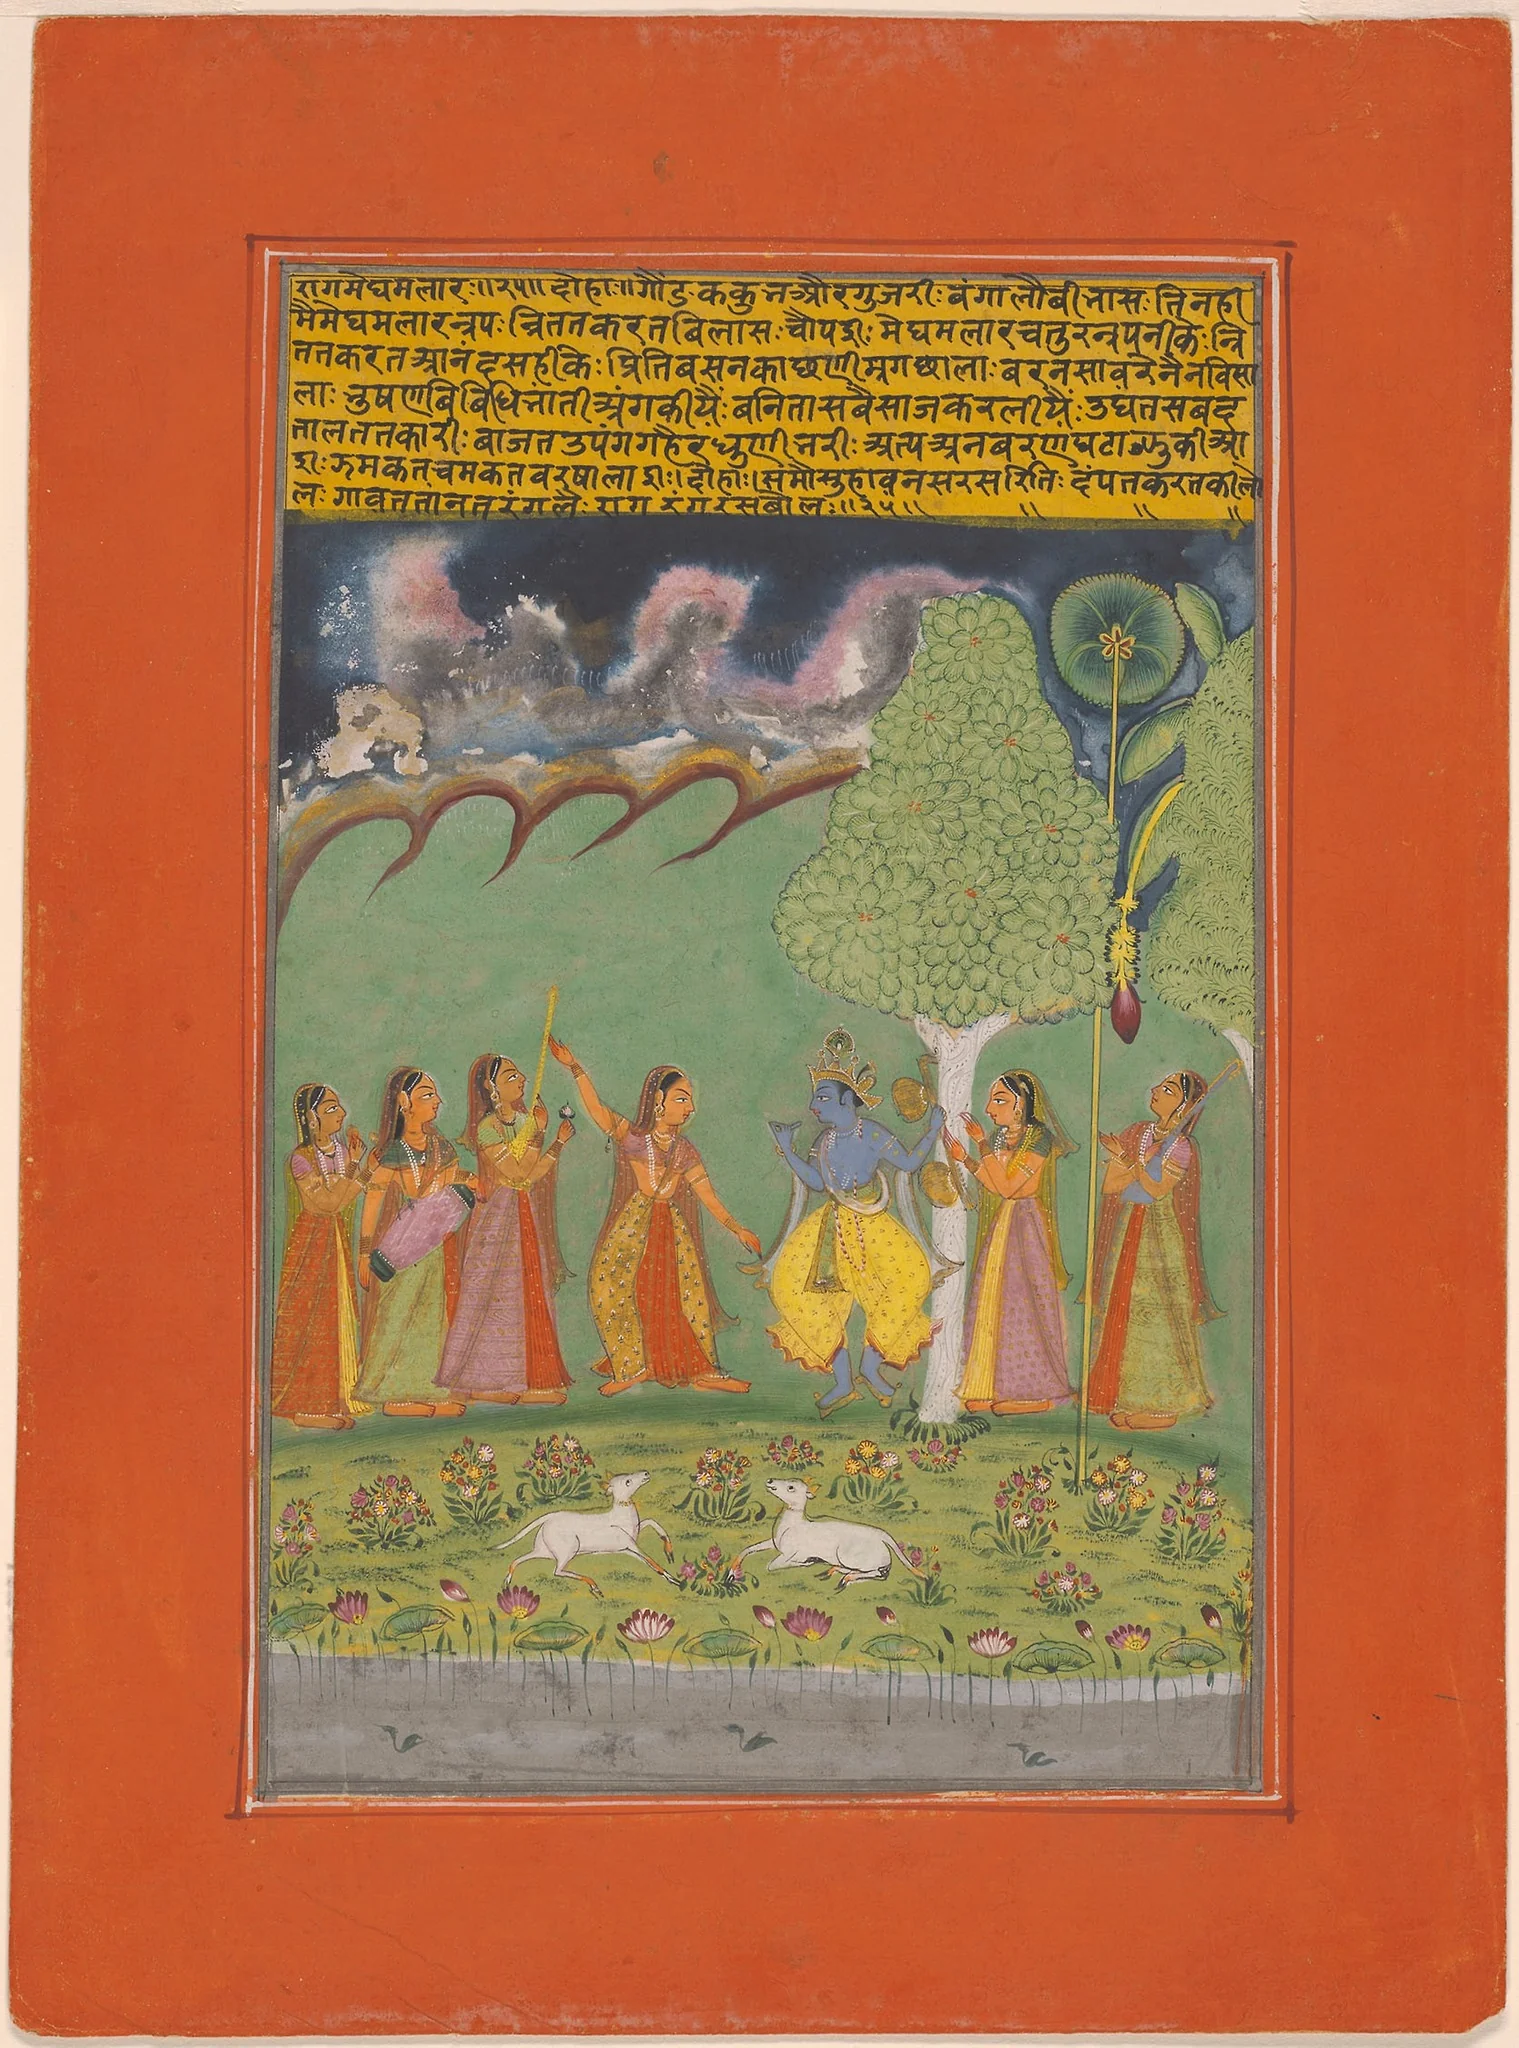 रागमेघमलार॥२५॥ दौहा॥गौंड ककुन और गुजरीः बंगालौबीनासः तिनही
मैमेघमलारन्रपः न्रिततकरतबिलासः चौपइीः मेघमलारचतुरन्रपनीकेः न्रि
ततकरतआनंदसहीकेः प्रितिबसनकाछणीम्रगछालाः बरनसावरेनैनविसा
लाः नुषणबिबिधिनांतीअंगकीयैंः बनितासबैसाजकरलीयैंः उघतसबद
तालततकारीः बाजतउपंगगहैर नरीः अत्पअनबरणघटा कीआ
इीः कमकतचमकतवरषालाइीः॥दौहाः॥समौसुहावनसरसरितिः दंपतकरतकीलो
लः गावततांनतरंगलैः राग रंगरसबौलः॥२५॥ ॥ ॥ ॥